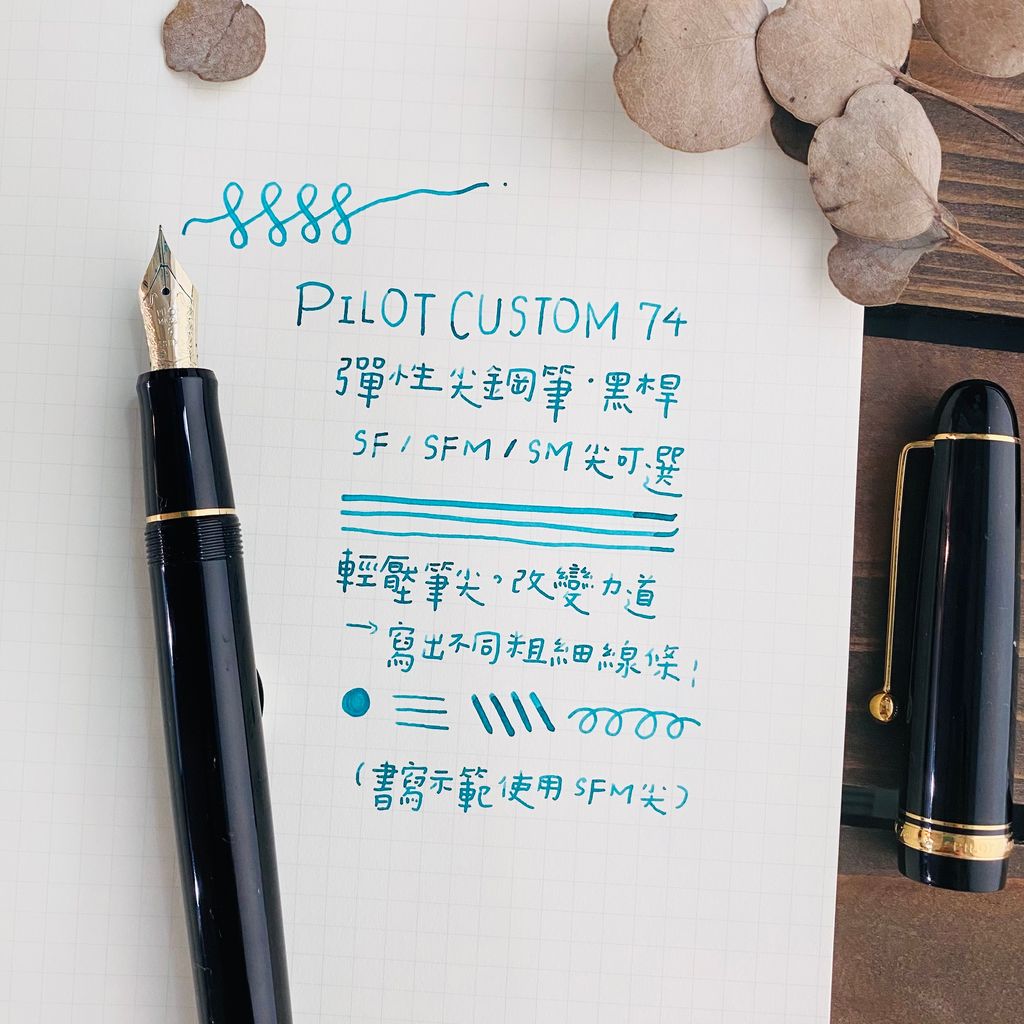 PILOT CUSTOM 74
彈性尖鋼筆・黑桿
SF / SFM / SM 尖可選
輕壓筆尖。改變力道
→ 寫出不同粗細線條!
(書寫示範使用 SFM 尖)
PILOT